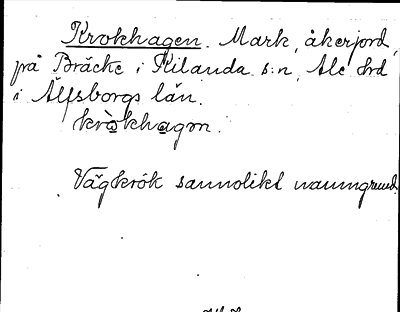 Krokhagen. Mark, åkerjord,
på Bräcke i Kilanda s:n, Ale hrd
i Älfsborgs län.
kròkhagən.
Vägkrök sannolikt namngrund.